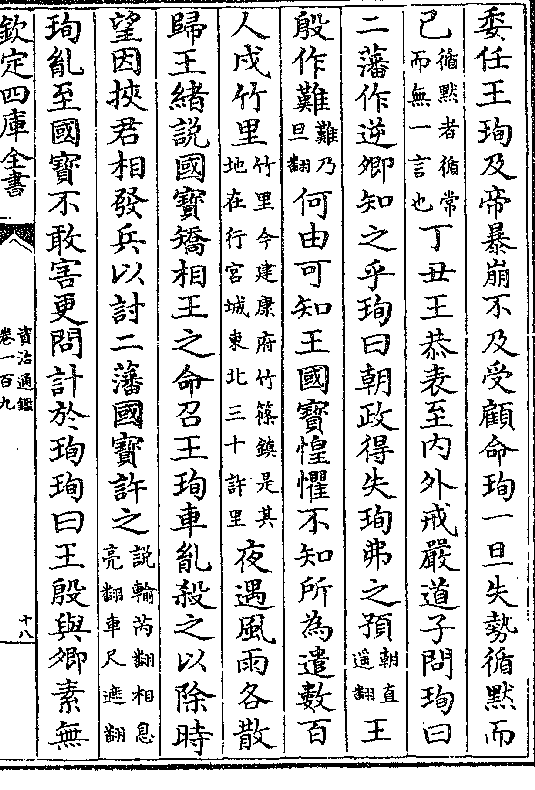 委任王珣及帝暴崩不及受顧命珣一旦失勢循默而
已循默者循常而無一言也丁丑王恭表至内外戒嚴道子問珣曰
二藩作逆卿知之乎珣曰朝政得失珣弗之預朝直遥翻王
殷作難難乃旦翻何由可知王國寶惶懼不知所為遣數百
人戍竹里竹里今建康府竹篠鎮是其地在行宫城東北三十許里夜遇風雨各散
歸王緒説國寶矯相王之命召王珣車胤殺之以除時
望因挾君相發兵以討二藩國寶許之説輸芮翻相息亮翻車尺遮翻
珣胤至國寶不敢害更問計於珣珣曰王殷與卿素無
欽定四庫全書
資治通鑑
卷一百九
十八